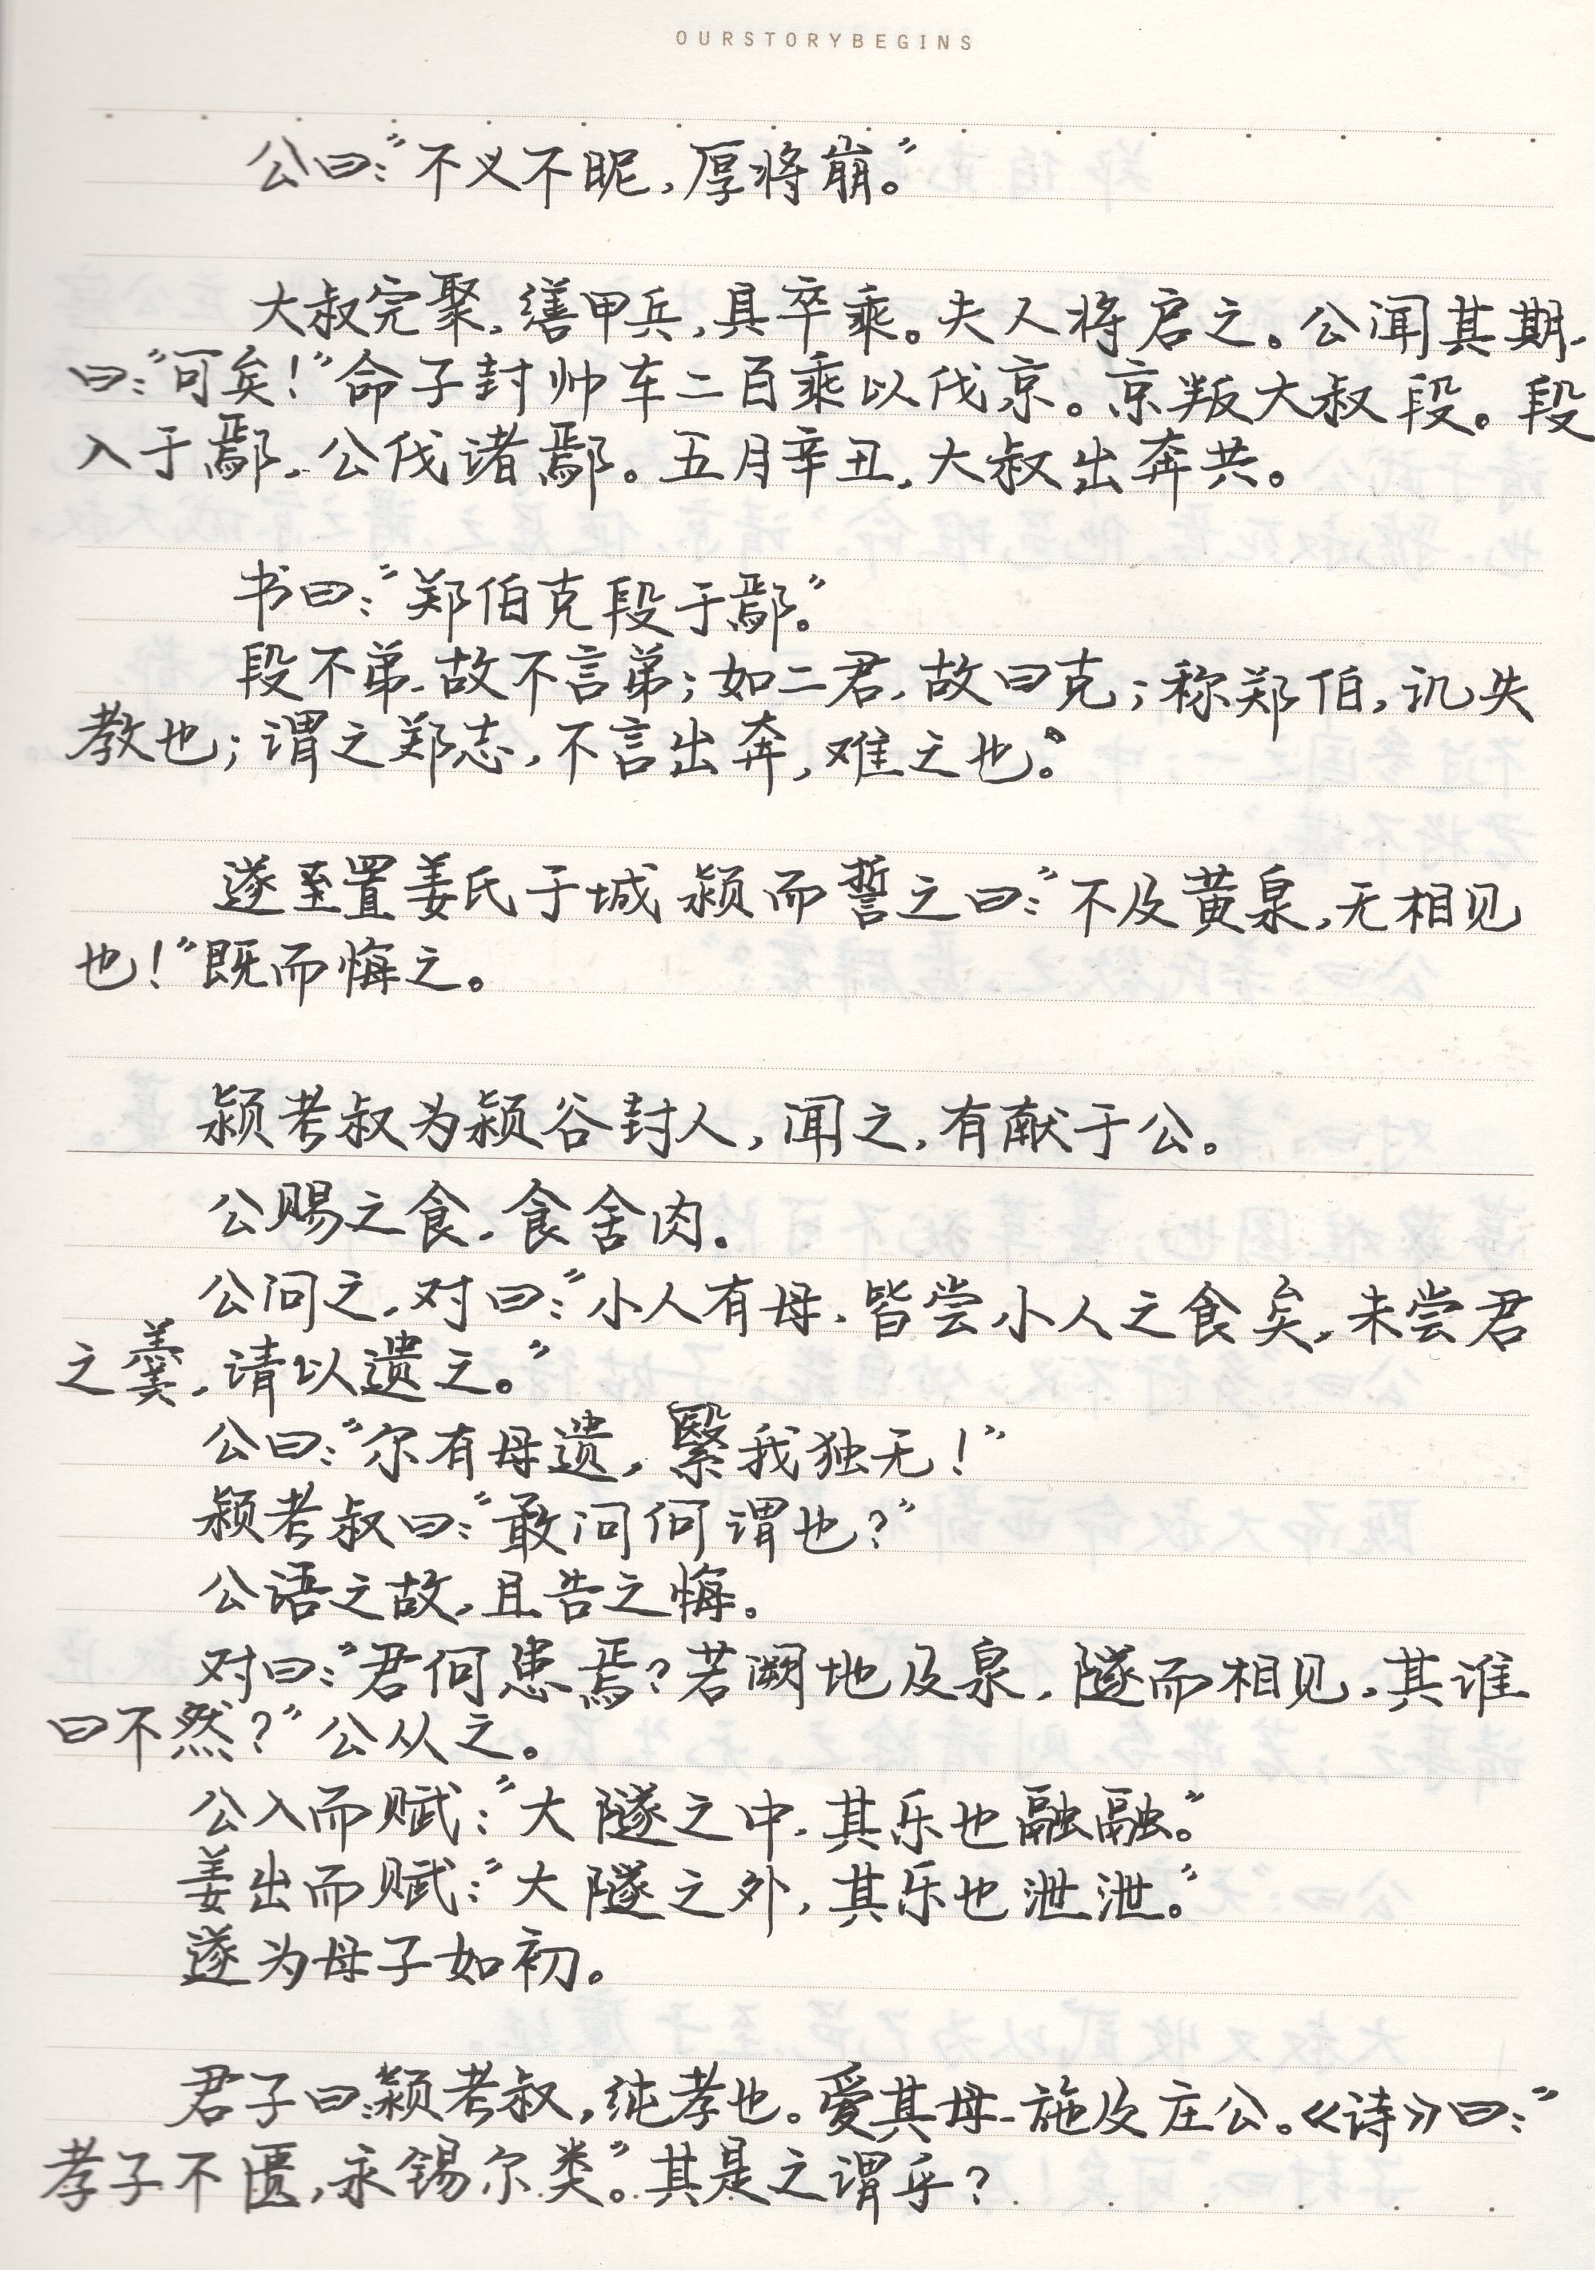 OURSTORYBEGINS
公曰：“不义不昵，厚将崩。”
大叔完聚，缮甲兵，具卒乘。夫人将启之。公闻其期，
曰：“可矣！”命子封帅车二百乘以伐京。京叛大叔段。段
入于鄢，公伐诸鄢。五月辛丑，大叔出奔共。
书曰：“郑伯克段于鄢。”
段不弟，故不言弟；如二君，故曰克；称郑伯，讥失
教也；谓之郑志，不言出奔，难之也。”
遂至置姜氏于城颍而誓之曰：“不及黄泉，无相见
也！”既而悔之。
颍考叔为颍谷封人，闻之，有献于公。
公赐之食，食舍肉。
公问之，对曰：“小人有母，皆尝小人之食矣，未尝君
之羹，请以遗之。”
公曰：“尔有母遗，繄我独无！”
颍考叔曰：“敢问何谓也？”
公语之故，且告之悔。
对曰：“君何患焉？若阙地及泉，隧而相见，其谁
曰不然？”公从之。
公入而赋：“大隧之中，其乐也融融。”
姜出而赋：“大隧之外，其乐也泄泄。”
遂为母子如初。
君子曰：颍考叔，纯孝也。爱其母，施及庄公。《诗》曰：“
孝子不匮，永锡尔类。”其是之谓乎？